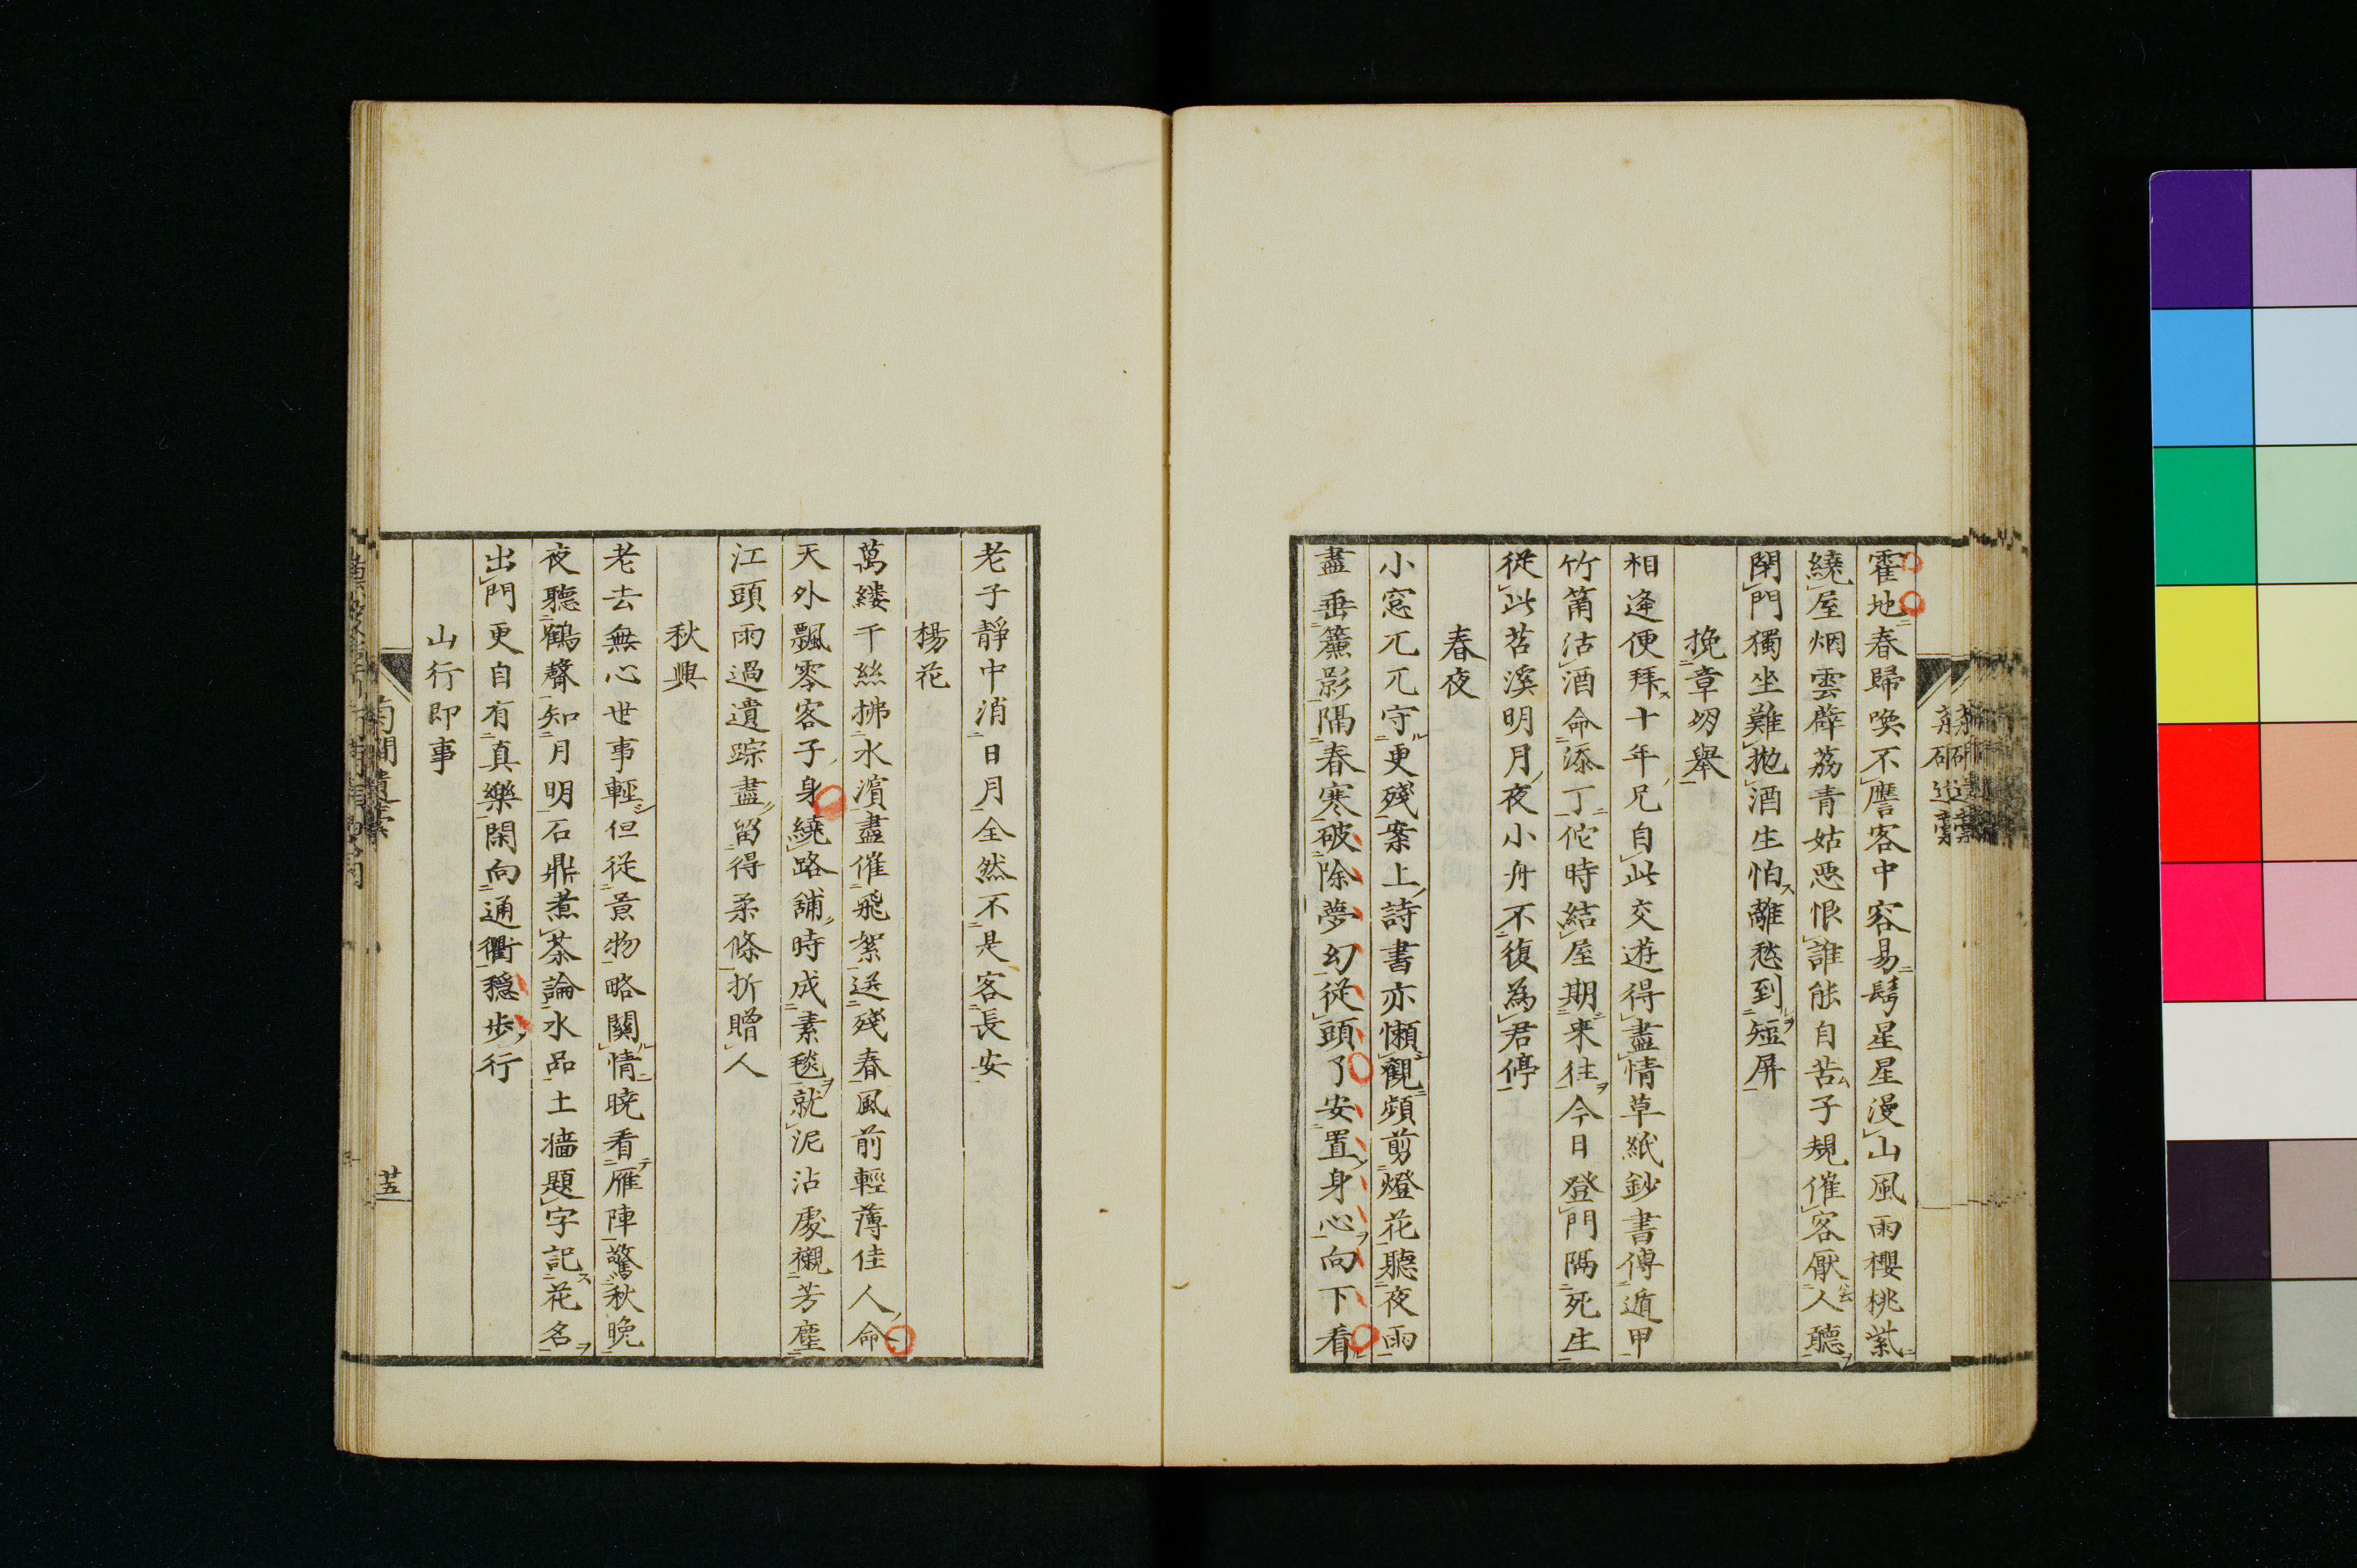 霍地春歸喚不譍客中容易鬢星星漫山風雨櫻桃紫
繞屋烟雲薜荔青姑惡恨誰能自苦子規催客厭人聽
閉門獨坐難抛酒生怕離愁到短屏
挽章坋舉
相逢便拜十年兄自此交遊得盡情草紙鈔書傳遁甲
竹筩沽酒命添丁佗時結屋期来往今日登門隔死生
從此苕溪明月夜小舟不復為君停
春夜
小窓兀兀守更殘案上詩書亦懶觀頻剪燈花聽夜雨
盡垂簾影隔春寒破除夢幻從頭了安置身心向下看
老子靜中消日月全然不是客長安
楊花
萬縷千絲拂水濵盡催飛絮送殘春風前輕薄佳人命
天外飄零客子身繞路舖時成素毯就泥沾處襯芳塵
江頭雨過遺踪盡留得柔條折贈人
秋興
老去無心世事輕但從景物略關情暁看雁陣驚秋晩
夜聽鶴聲知月明石鼎煮茶論水品土墻題字記花名
出門更自有真樂閑向通衢穏步行
山行即事
菊礀遺稾
廿五